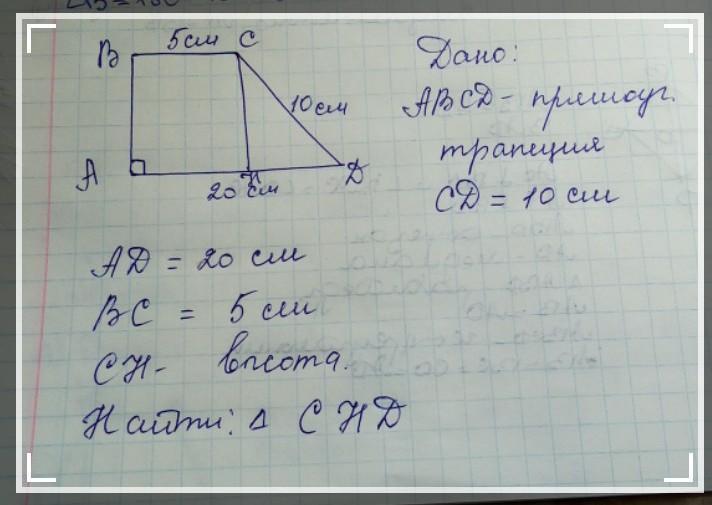 5см
B C
10см
A H D
20 см
Дано:
ABCD - прямоуг.
трапеция
CD = 10 см
AD = 20 см
BC = 5 см
CH - высота.
Найти: Δ CHD